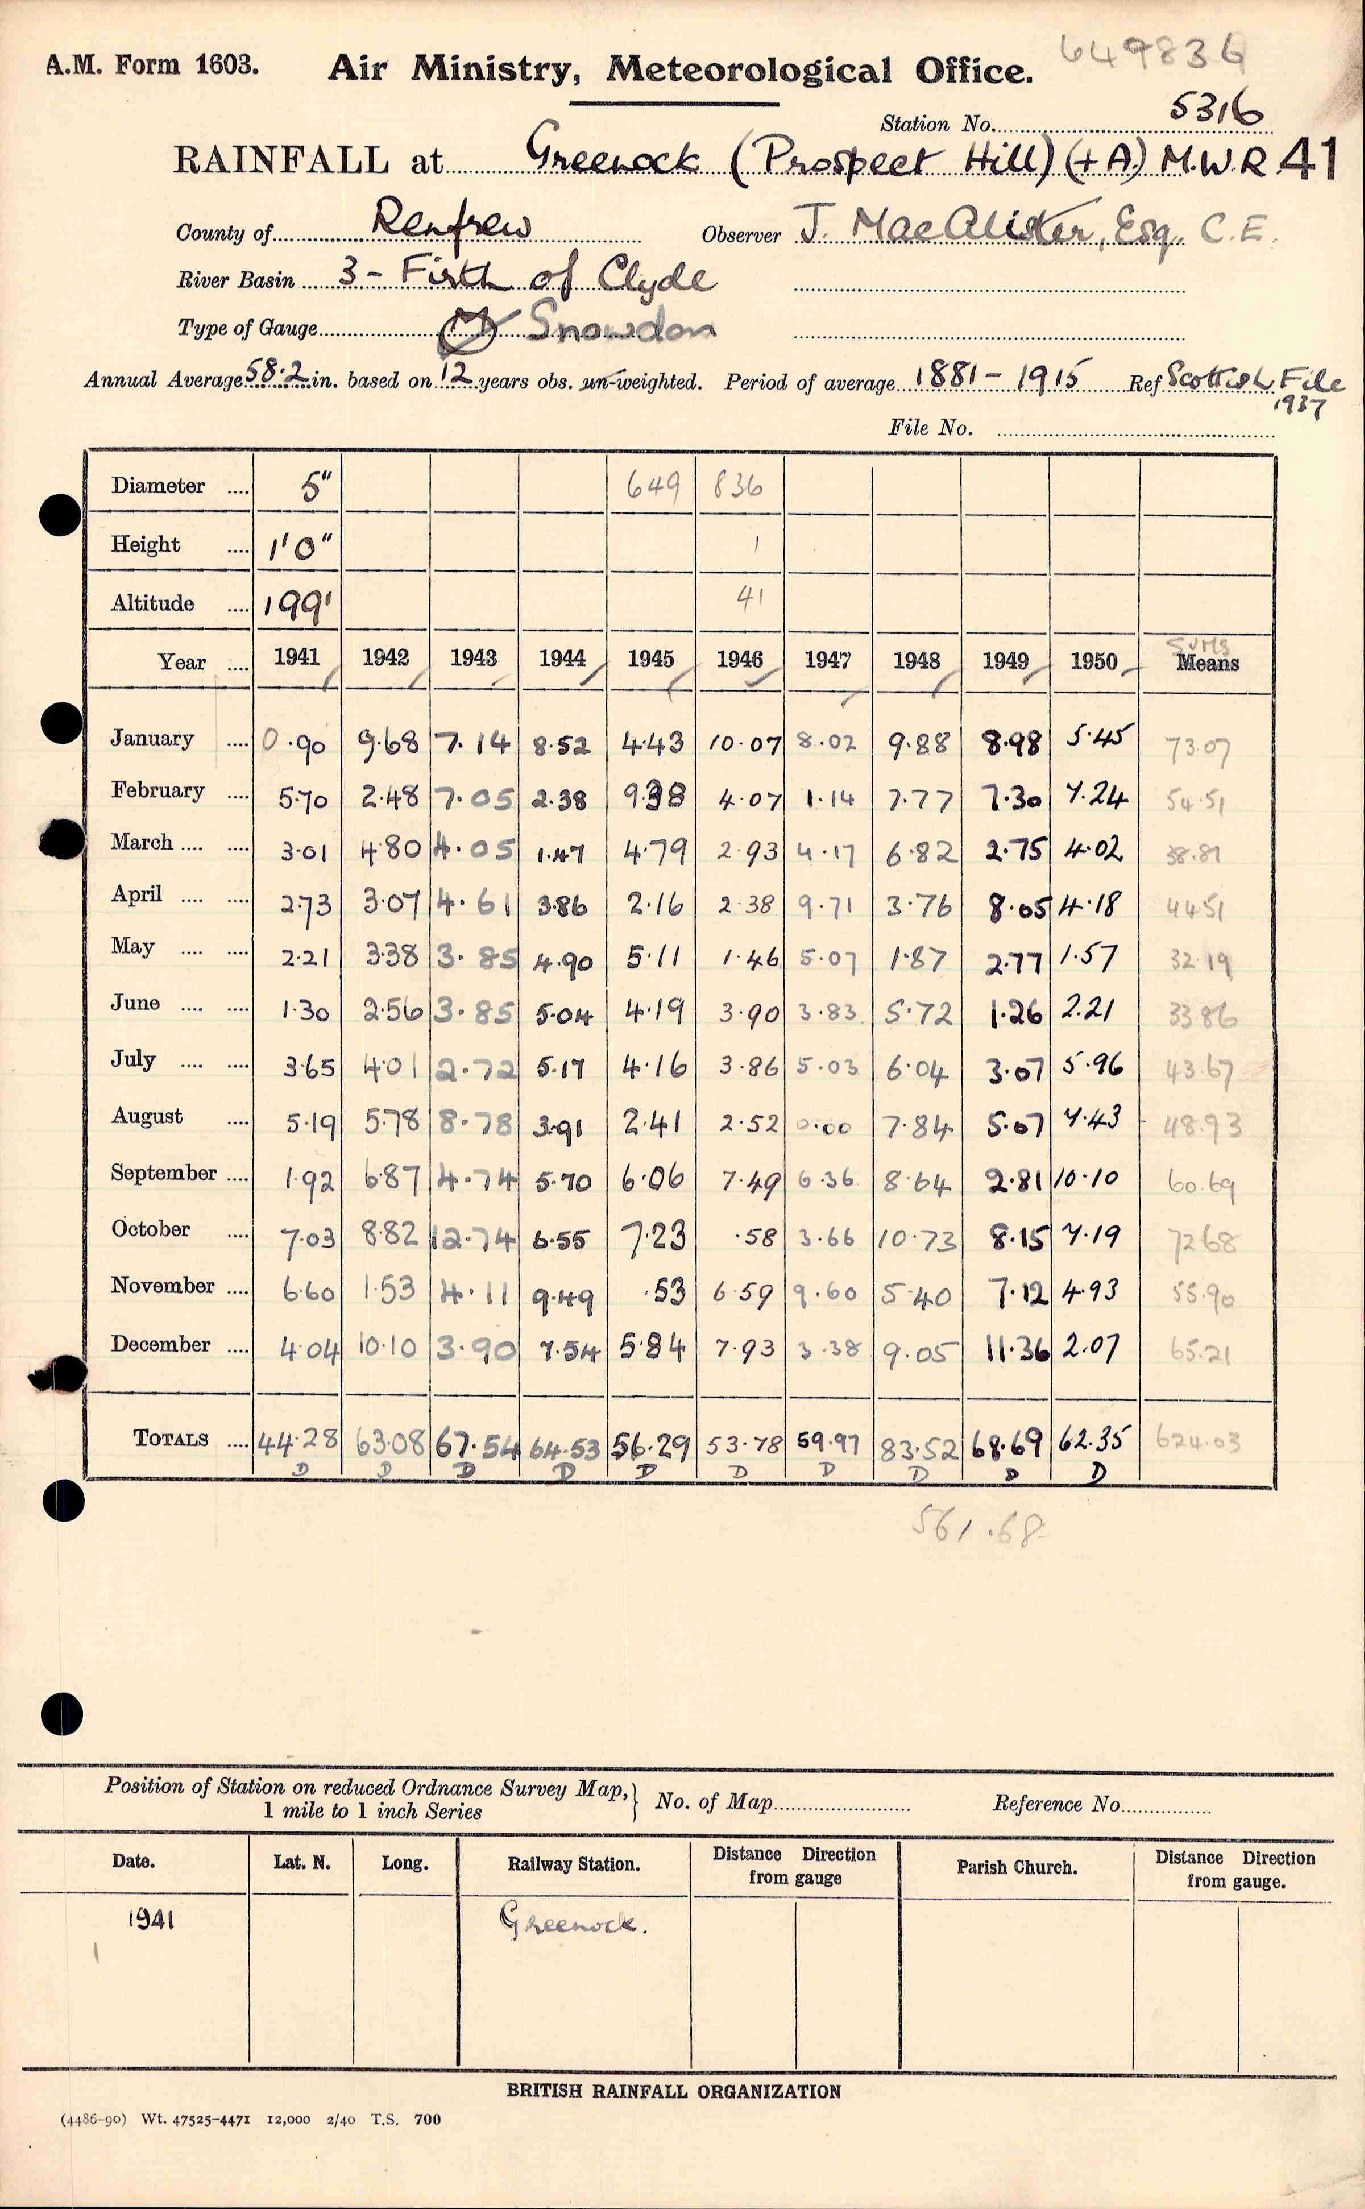 649836
A.M. Form 1603. Air Ministry, Meteorological Office.
Station No. 5316
RAINFALL at Greenock (Prospect Hill) (+A) M.W.R. 41
County of Renfrew Observer J. MacAlister, Esq. C.E.
River Basin 3 - Firth of Clyde
Type of Gauge M Snowdon
Annual Average 58.2 in. based on 12 years obs. un-weighted. Period of average 1881 - 1915 Ref Scottish File
1937
File No.
Diameter .... 5" 649 836
Height .... 1'0" 1
Altitude .... 199' 41
Sums
Year .... 1941 1942 1943 1944 1945 1946 1947 1948 1949 1950 Means
January .... 0.90 9.68 7.14 8.52 4.43 10.07 8.02 9.88 8.98 5.45 73.07
February .... 5.70 2.48 7.05 2.38 9.38 4.07 1.14 7.77 7.30 7.24 54.51
March .... .... 3.01 4.80 4.05 1.47 4.79 2.93 4.17 6.82 2.75 4.02 38.81
April .... .... 2.73 3.07 4.61 3.86 2.16 2.38 9.71 3.76 8.05 4.18 44.51
May .... .... 2.21 3.38 3.85 4.90 5.11 1.46 5.07 1.87 2.77 1.57 32.19
June .... .... 1.30 2.56 3.85 5.04 4.19 3.90 3.83 5.72 1.26 2.21 33.86
July .... .... 3.65 4.01 2.72 5.17 4.16 3.86 5.03 6.04 3.07 5.96 43.67
August .... 5.19 5.78 8.78 3.91 2.41 2.52 0.00 7.84 5.07 7.43 48.93
September .... 1.92 6.87 4.74 5.70 6.06 7.49 6.36 8.64 2.81 10.10 60.69
October .... 7.03 8.82 12.74 6.55 7.23 .58 3.66 10.73 8.15 7.19 72.68
November .... 6.60 1.53 4.11 9.49 .53 6.59 9.60 5.40 7.12 4.93 55.90
December .... 4.04 10.10 3.90 7.54 5.84 7.93 3.38 9.05 11.36 2.07 65.21
TOTALS .... 44.28 63.08 67.54 64.53 56.29 53.78 59.97 83.52 68.69 62.35 624.03
D D D D D D D D D D
561.68
Position of Station on reduced Ordnance Survey Map,
1 mile to 1 inch Series } No. of Map Reference No.
Date. Lat. N. Long. Railway Station. Distance Direction from gauge Parish Church. Distance Direction from gauge.
1941 Greenock.
1
BRITISH RAINFALL ORGANIZATION
(4486-90) Wt. 47525-4471 12,000 2/40 T.S. 700